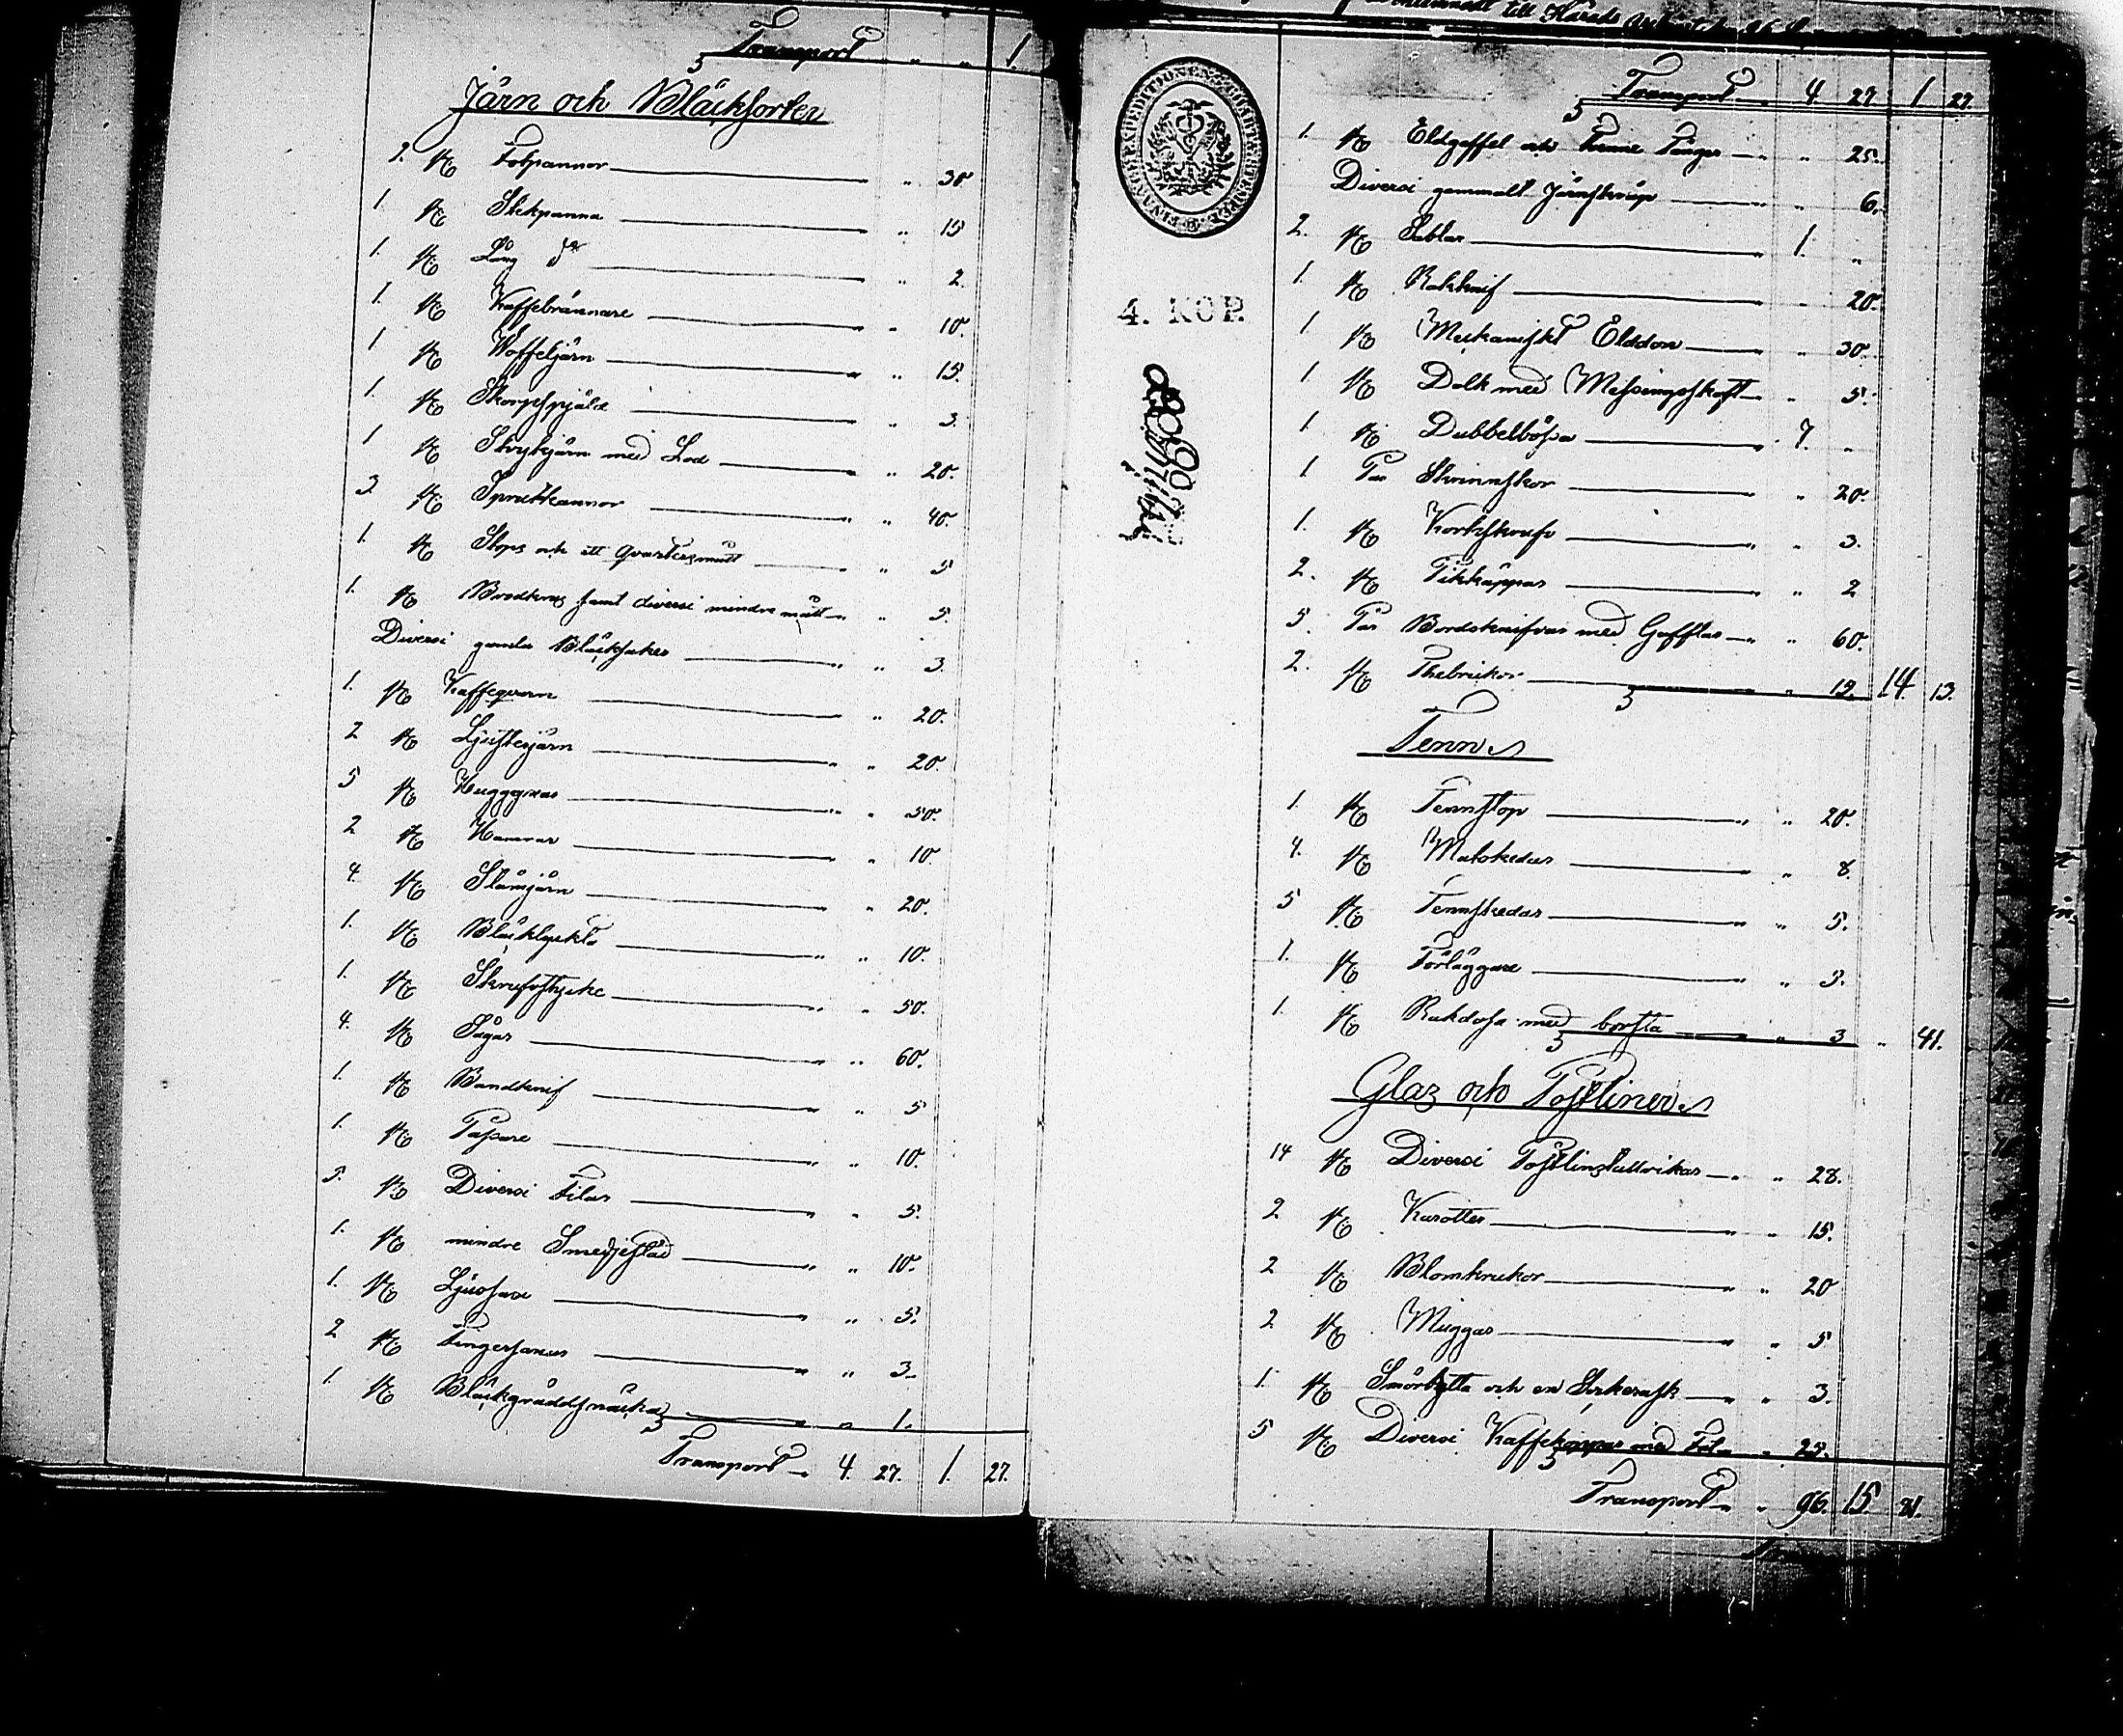 Transport " " 1.
Järn och Bläcksorter
2. st: Fotpannor " 30
1 st: Stekpanna " 15
1. st: Lång do " 2.
1. st: Kaffebrännare " 10.
1 st: Woffeljärn " 15.
1. st: Skorpspjäld " 3.
1 st: Strykjärn med Lod " 20.
3. st: Sprutkannor " 40.
1. st: Stops och ett Qvartersmått " 5
1. st: samt diversi mindre mått " 5.
Diversi gamla Bläcksaker " 3.
1. st: Kaffeqvarn " 20.
2 st: Ljusterjärn " 20.
5 st: " 50.
2 st: Hamrar " 10
4. st: Stämjärn " 20.
1. st: Bläcklyckta " 10.
1. st: Skrufstycke " 50.
4. st: Sågar " 60.
1. st: Bandknif " 5
1. st: Passare " 10.
5. st: Diversi Filar " 5.
1. st: mindre Smedjestäd " 10.
1. st: Ljussax " 5.
2 st: Fingersaxar " 3.
1. st: Bläckgräddsnäcka " 1.
Transport 4. 27. 1. 27.
Transport 4 27 1 27.
4. KOP.
1. st: Eldgaffel och Tänger " 25.
Diversi gammalt Järnskrap " 6.
2. st: Sablar 1. "
1. st: Rakknif " 20.
1 st: Meckaniskt Elddon " 30.
1. st: Dolk med Messingsskaft " 5.
1 st: Dubbelbössa 7. "
1 Par Skrinnskor " 20.
1. st: Korkskruf " 3.
2. st: Pikkäppar " 2
5. Par Bordsknifvar med Gafflar " 60.
2. st: Thebrickor " 12. 14 13.
Tenn
1. st: Tennstop " 20.
4. st: Matskedar " 8.
5 st: Tennskedar " 5.
1. st: Förläggare " 3.
1. st: Rakdosa med borsta " 3 " 41.
Glas och Posliner
14 st: Diversi Poslinstallrikar " 28.
2 st: Karotter " 15.
2 st: Blomkrukor " 20
2 st: Muggar " 5
1. st: Smörbytta och en Sockerask " 3.
5 st: Diversi Kaffekoppar med Fat " 25.
Transport " 96. 15. 81.